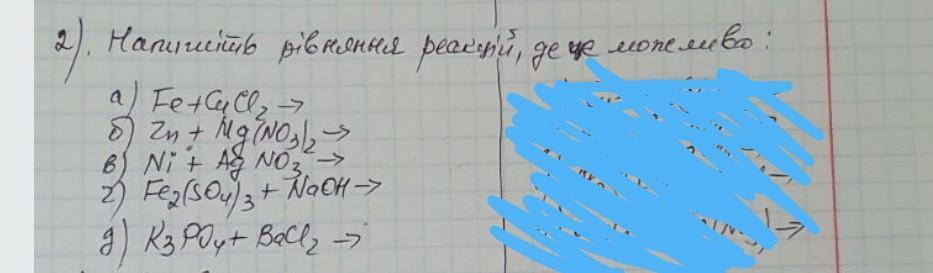 2). Напишіть рівняння реакцій, де це можливо:
а) Fe+CuCl2 →
б) Zn + Mg(NO3)2 →
в) Ni + AgNO3 →
г) Fe2(SO4)3 + NaOH →
д) K3PO4 + BaCl2 →